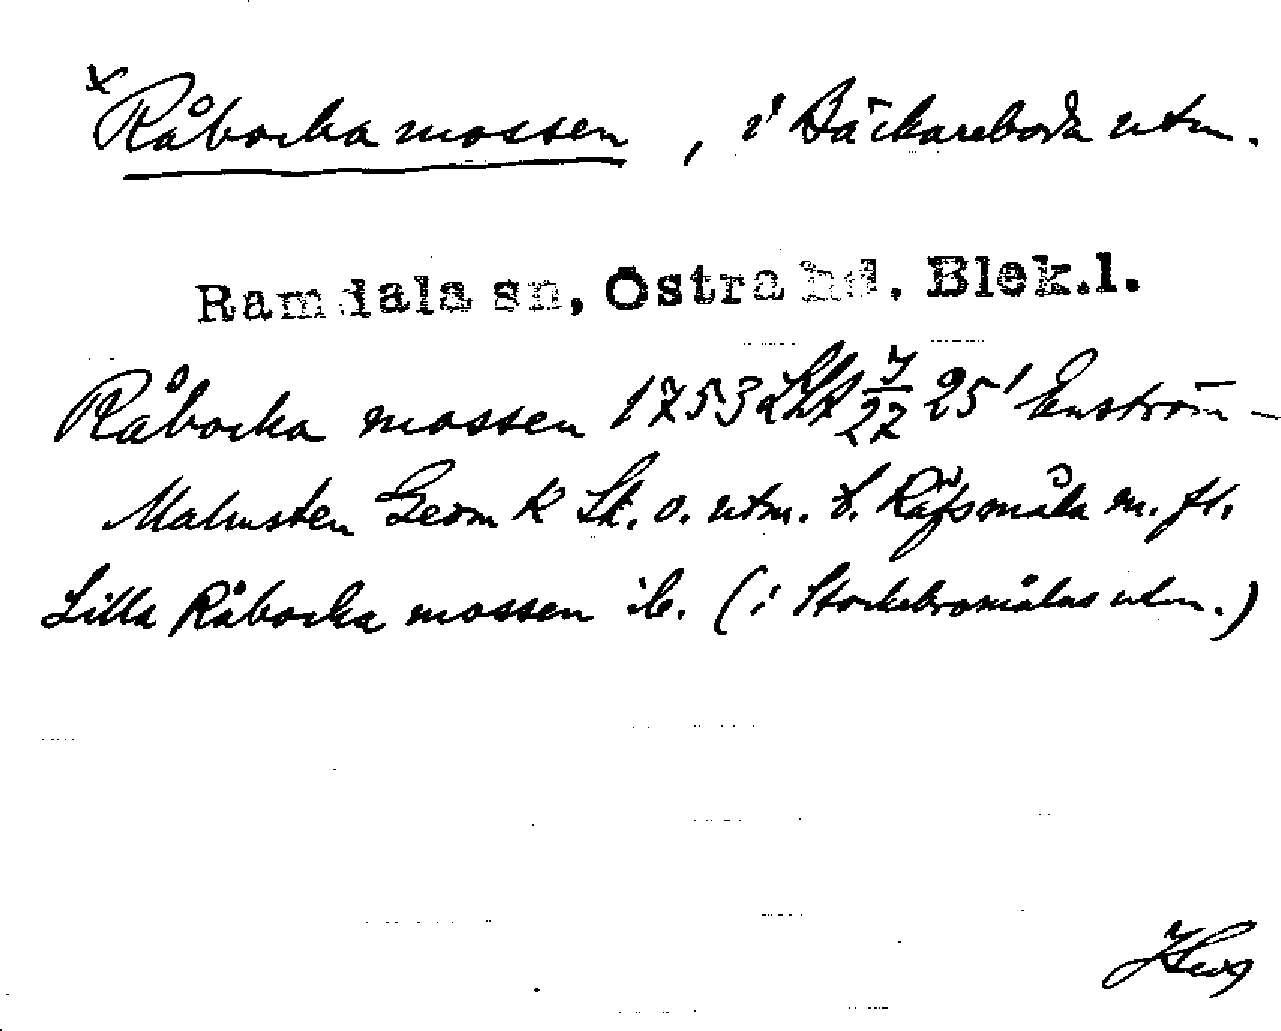 x Råbocka mossen, i Bäckareboda utm.
Ramdala sn, Östra hd. Blek.l.
Råbocka mossen 1753 LKA 7/27 25' Enström-
Malmsten Geom K Sk. o. utm. t. Räfsmåla m. fl.
Lilla Råbocka mossen ib. (i Stockebromålas utm.)